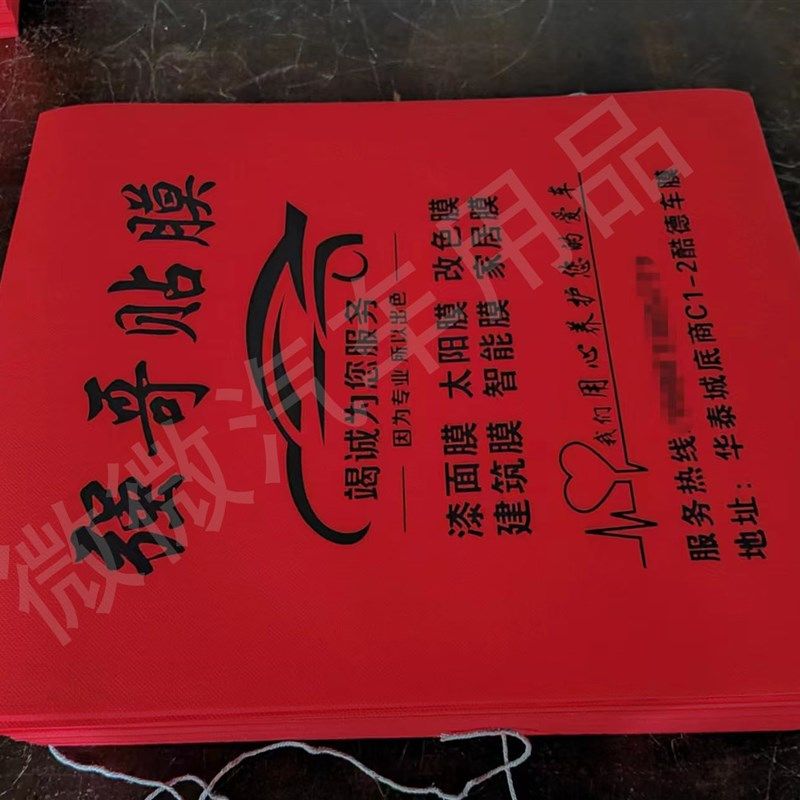 强哥贴膜
竭诚为您服务
因为专业 所以出色
漆面膜 太阳膜 改色膜
建筑膜 智能膜 家居膜
我们用心养护您的爱车
服务热线
地址：华泰城底商C1-2酷德车膜
微微汽车用品